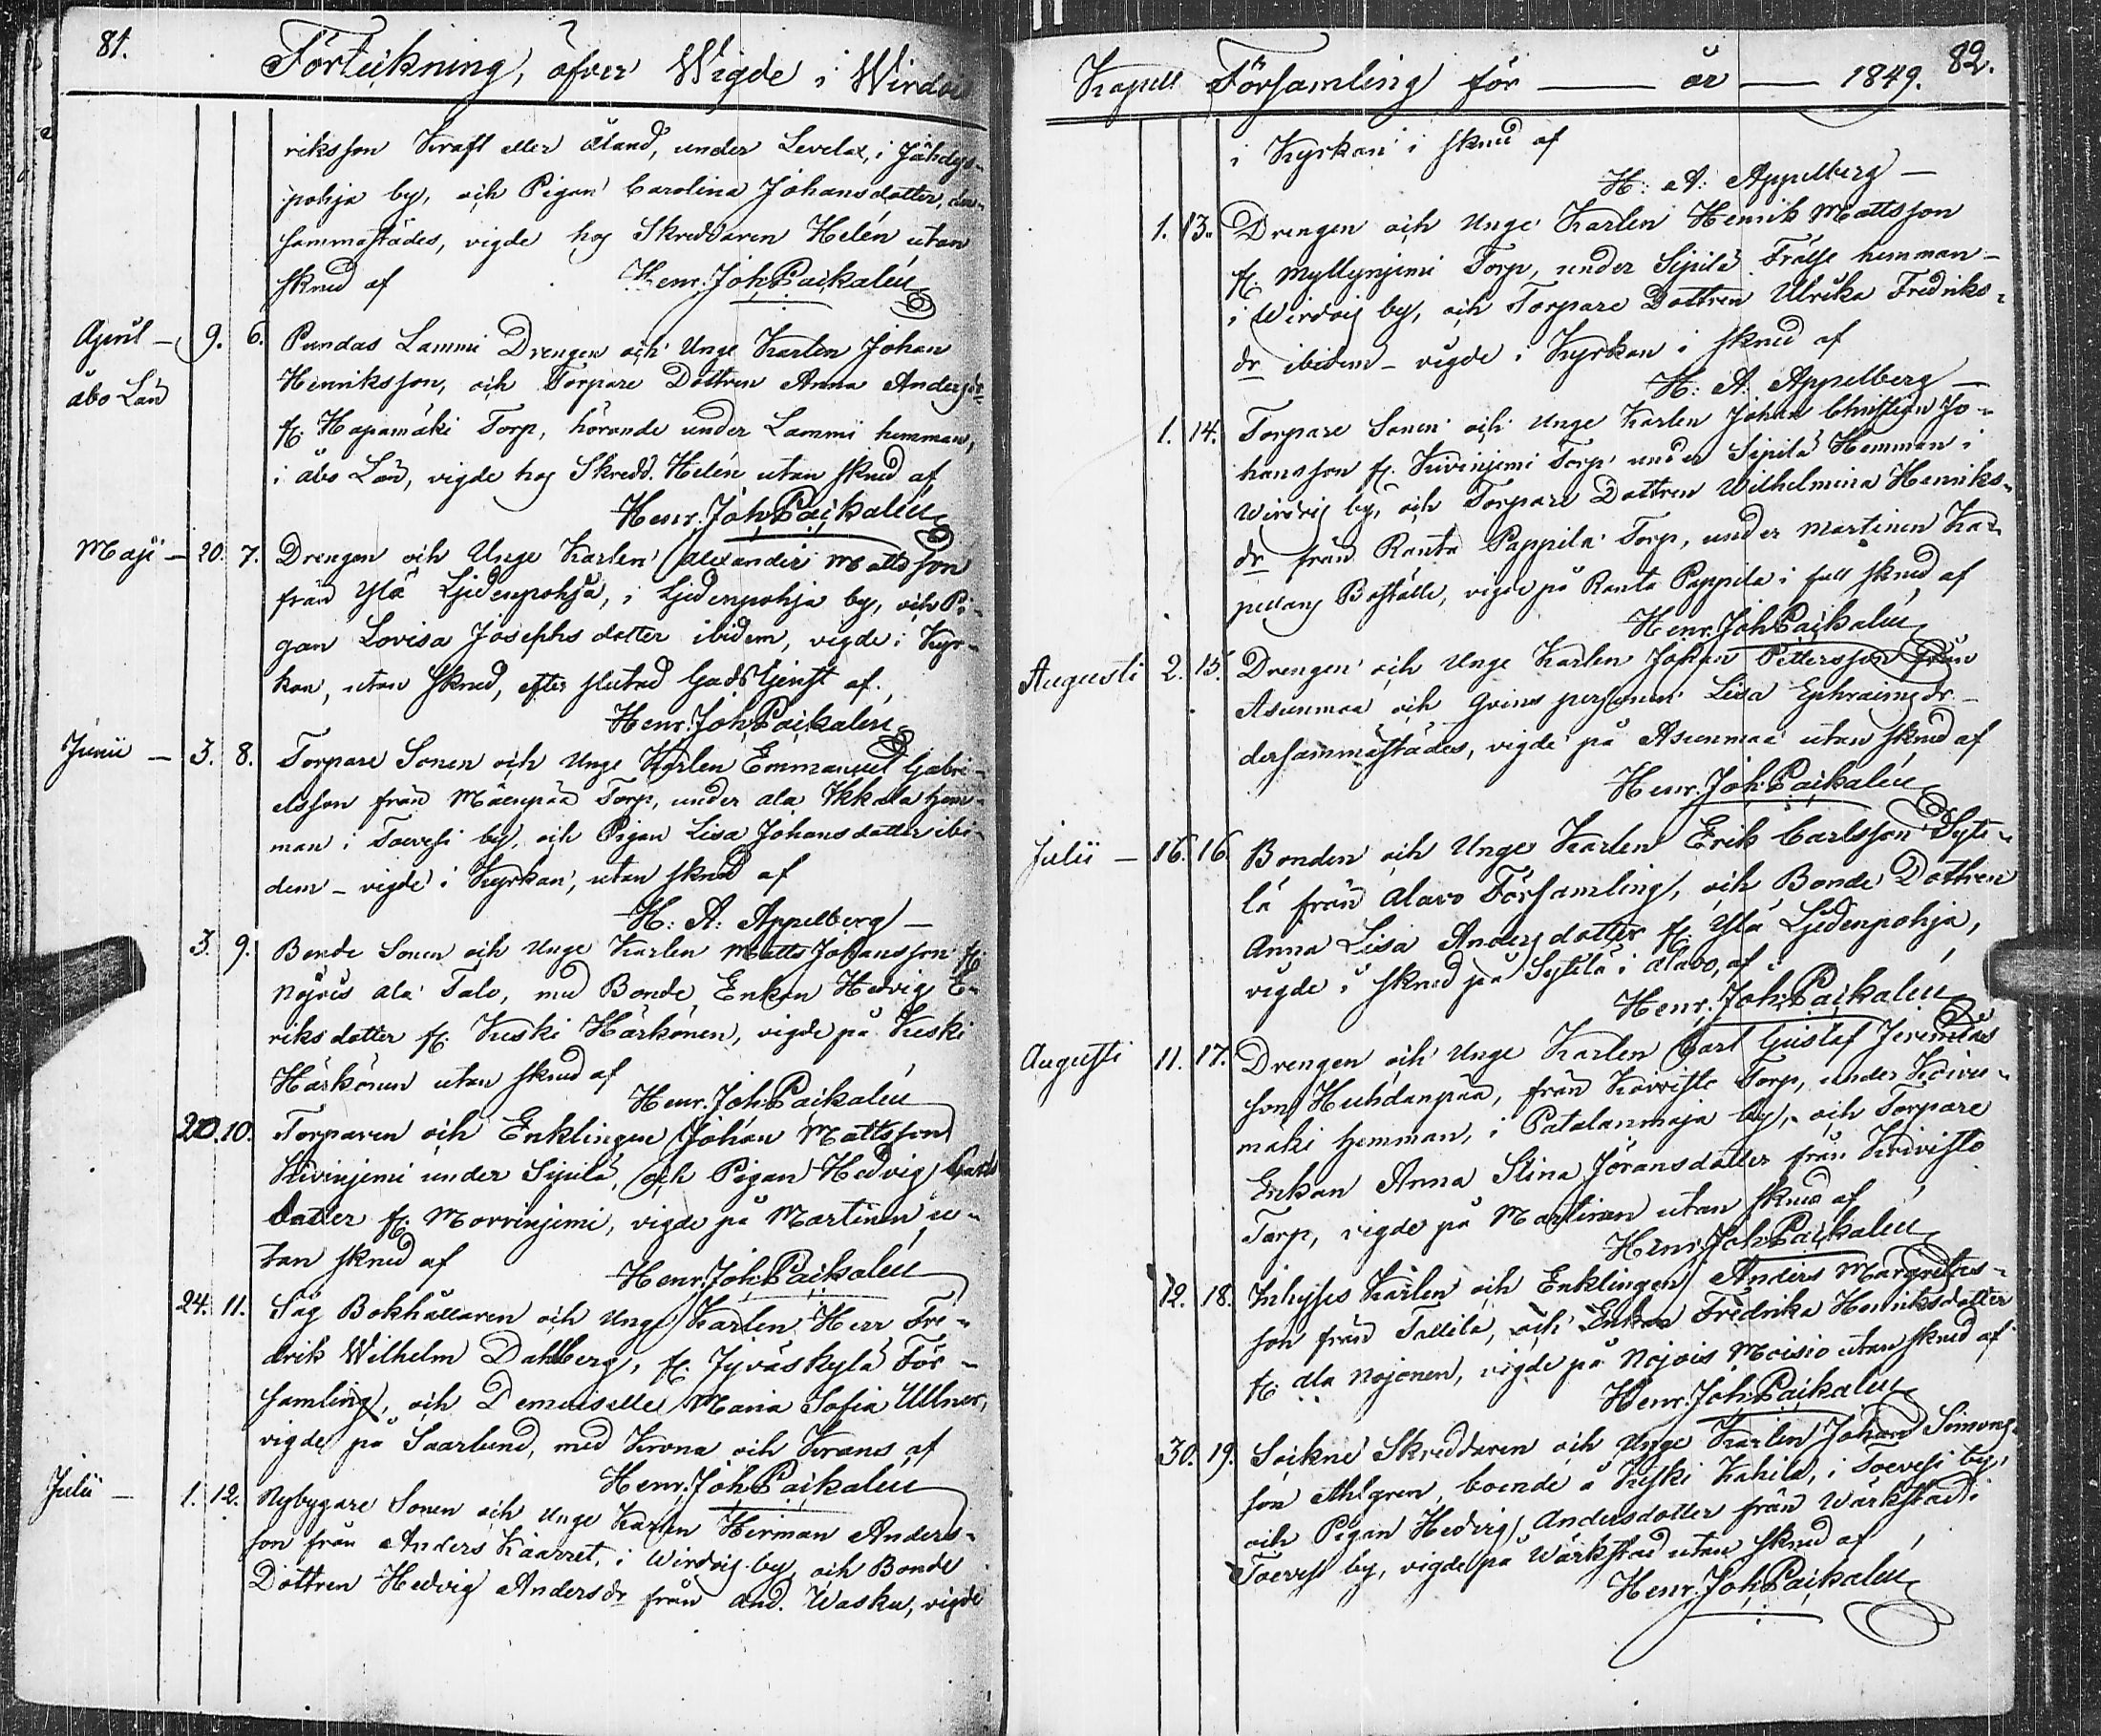 81.
Förteckning, öfver Wigde i Wirdois
riksson Kraft eller Åland, under Levelax, i Jähdys-
pohja by, och Pigan Carolina Johansdotter, der-
sammastädes, vigde hos Skreddaren Helén utan
skrud af Henr. Joh. Paikalén
April — 9. 6. Pundas Lammi Drengen och Unge Karlen Johan
Åbo Län Henriksson, och Torpare Dottren Anna Andersdr
fr. Hapamäki Torp, hörande under Lammi hemman,
i Åbo Län, vigde hos Skredd. Helén utan skrud af
Henr. Joh. Paikalén
Maji — 20. 7. Drengen och Unge Karlen Alexander Mattsson
från Ylä Ljedenpohja, i Ljedenpohja by, och Pi-
gan Lovisa Josephsdotter ibidem, vigde i Kyr-
kan, utan skrud, efter slutad Gudstjenst af
Henr. Joh. Paikalén
Junii — 3. 8. Torpare Sonen och Unge Karlen Emmanuel Gabri-
elsson från Mäenpää Torp, under Ala Ikkala hem-
man i Toevesi by, och Pigan Lisa Johansdotter ibi-
dem — vigde i Kyrkan, utan skrud af
H: A: Appelberg —
3. 9. Bonde Sonen och Unge Karlen Matts Johansson fr.
Nojois Ala Talo, med Bonde Enkan Hedvig E-
riksdotter fr. Keski Härkönen, vigde på Keski
Härkönen utan skrud af
Henr. Joh. Paikalén
20. 10. Torparen och Enklingen Johan Mattsson
Kivinjemi under Sipilä, och Pigan Hedvig Carls
dotter fr. Morrinjemi, vigde på Martinen u-
tan skrud af
Henr. Joh. Paikalén
24. 11. Såg Bokhållaren och Unge Karlen Herr Fre-
drik Wilhelm Dahlberg, fr. Jyväskylä För-
samling, och Demoiselle Maria Sofia Ullner,
vigde på Saarlund, med Krona och Krans af
Henr. Joh. Paikalén
Julii — 1. 12. Nybygare Sonen och Unge Karlen Herman Anders-
son från Anders Kaarret, i Wirdois by, och Bonde
Dottren Hedvig Andersdr från And. Wasku, vigde
82.
Kapell Församling för — år — 1849.
i Kyrkan i skrud af
H: A: Appelberg —
1. 13. Drengen och Unge Karlen Henrik Mattsson
fr. Myllynjemi Torp, under Sipilä Frälse hemman —
i Wirdois by, och Torpare Dottren Ulrika Fredriks-
dr ibidem — vigde i Kyrkan i skrud af
H: A: Appelberg —
1. 14. Torpare Sonen och Unge Karlen Johan Christian Jo-
hansson fr. Kivinjemi Torp under Sipilä Hemman i
Wirdois by, och Torpare Dottren Wilhelmina Henriks-
dr från Ranta Pappila Torp, under Martinen Ka-
pellans Boställe, vigde på Ranta Pappila i full skrud af
Henr. Joh. Paikalén
Augusti 2. 15. Drengen och Unge Karlen Johan Pettersson från
Asunmaa och Qvins personen Lisa Ephraimsdr —
dersammastädes, vigde på Asunmaa utan skrud af
Henr. Joh. Paikalén
Julii — 16. 16. Bonden och Unge Karlen Erik Carlsson Syti-
lä från Alavo Församling, och Bonde Dottren
Anna Lisa Andersdotter fr. Ylä Ljedenpohja,
vigde i skrud på Sytilä i Alavo, af
Henr. Joh. Paikalén
Augusti 11. 17. Drengen och Unge Karlen Carl Gustaf Jeremias
son Huhdanpää, från Koivisto Torp, under Koivu-
mäki hemman, i Patalanmaja by, och Torpare
Enkan Anna Stina Jöransdotter från Koivisto
Torp, vigde på Martinen utan skrud af
Henr. Joh. Paikalén
12. 18. Inhyses Karlen och Enklingen Anders Margretas-
son från Tallila, och Enkan Fredrika Henriksdotter
fr. Ala Nojonen, vigde på Nojois Moisio utan skrud af
Henr. Joh. Paikalén
30. 19. Sockne Skreddaren och Unge Karlen Johan Simons-
son Ahlgren, boende å Keski Kahila, i Toevesi by,
och Pigan Hedvig Andersdotter från Wärkstad i
Toevesi by, vigde på Wärkstad utan skrud af
Henr. Joh. Paikalén